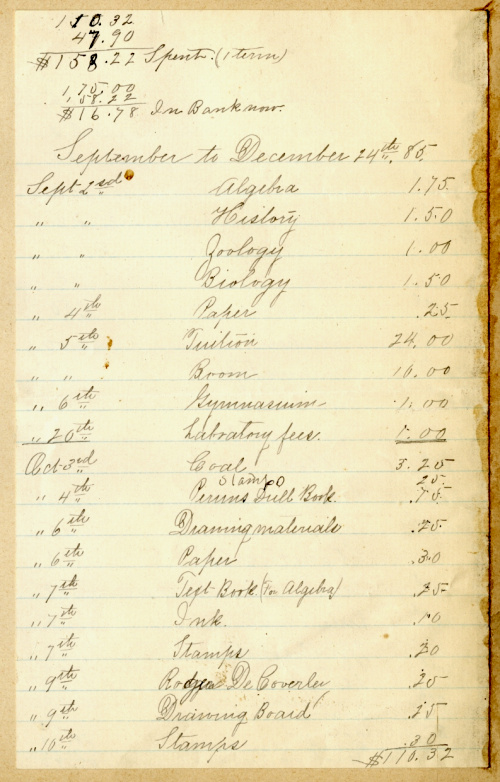 110.32
47.90
$158.22 Spent. (1 term)
175.00
158.22
$16.78 In Bank now.
September to December 24th. 85.
Sept 2nd Algebra 1.75
" " History 1.50
" " Zoology 1.00
" " Biology 1.50
" 4th Paper .25
" 5th Tuition 24.00
" " Room 16.00
" 6th Gymnasium 1.00
" 20th Labratory fees. 1.00
Oct 3rd Coal 3.25
Stamps 25
" 4th Drill Book .75
" 6th Drawing materials .25
" 6th Paper .30
" 7th Text-Book (For Algebra) .35
" 7th Ink. .10
" 7th Stamps .20
" 9th Roger De Coverley .25
" 9th Drawing Board .25
" 10th Stamps .30
$110.32